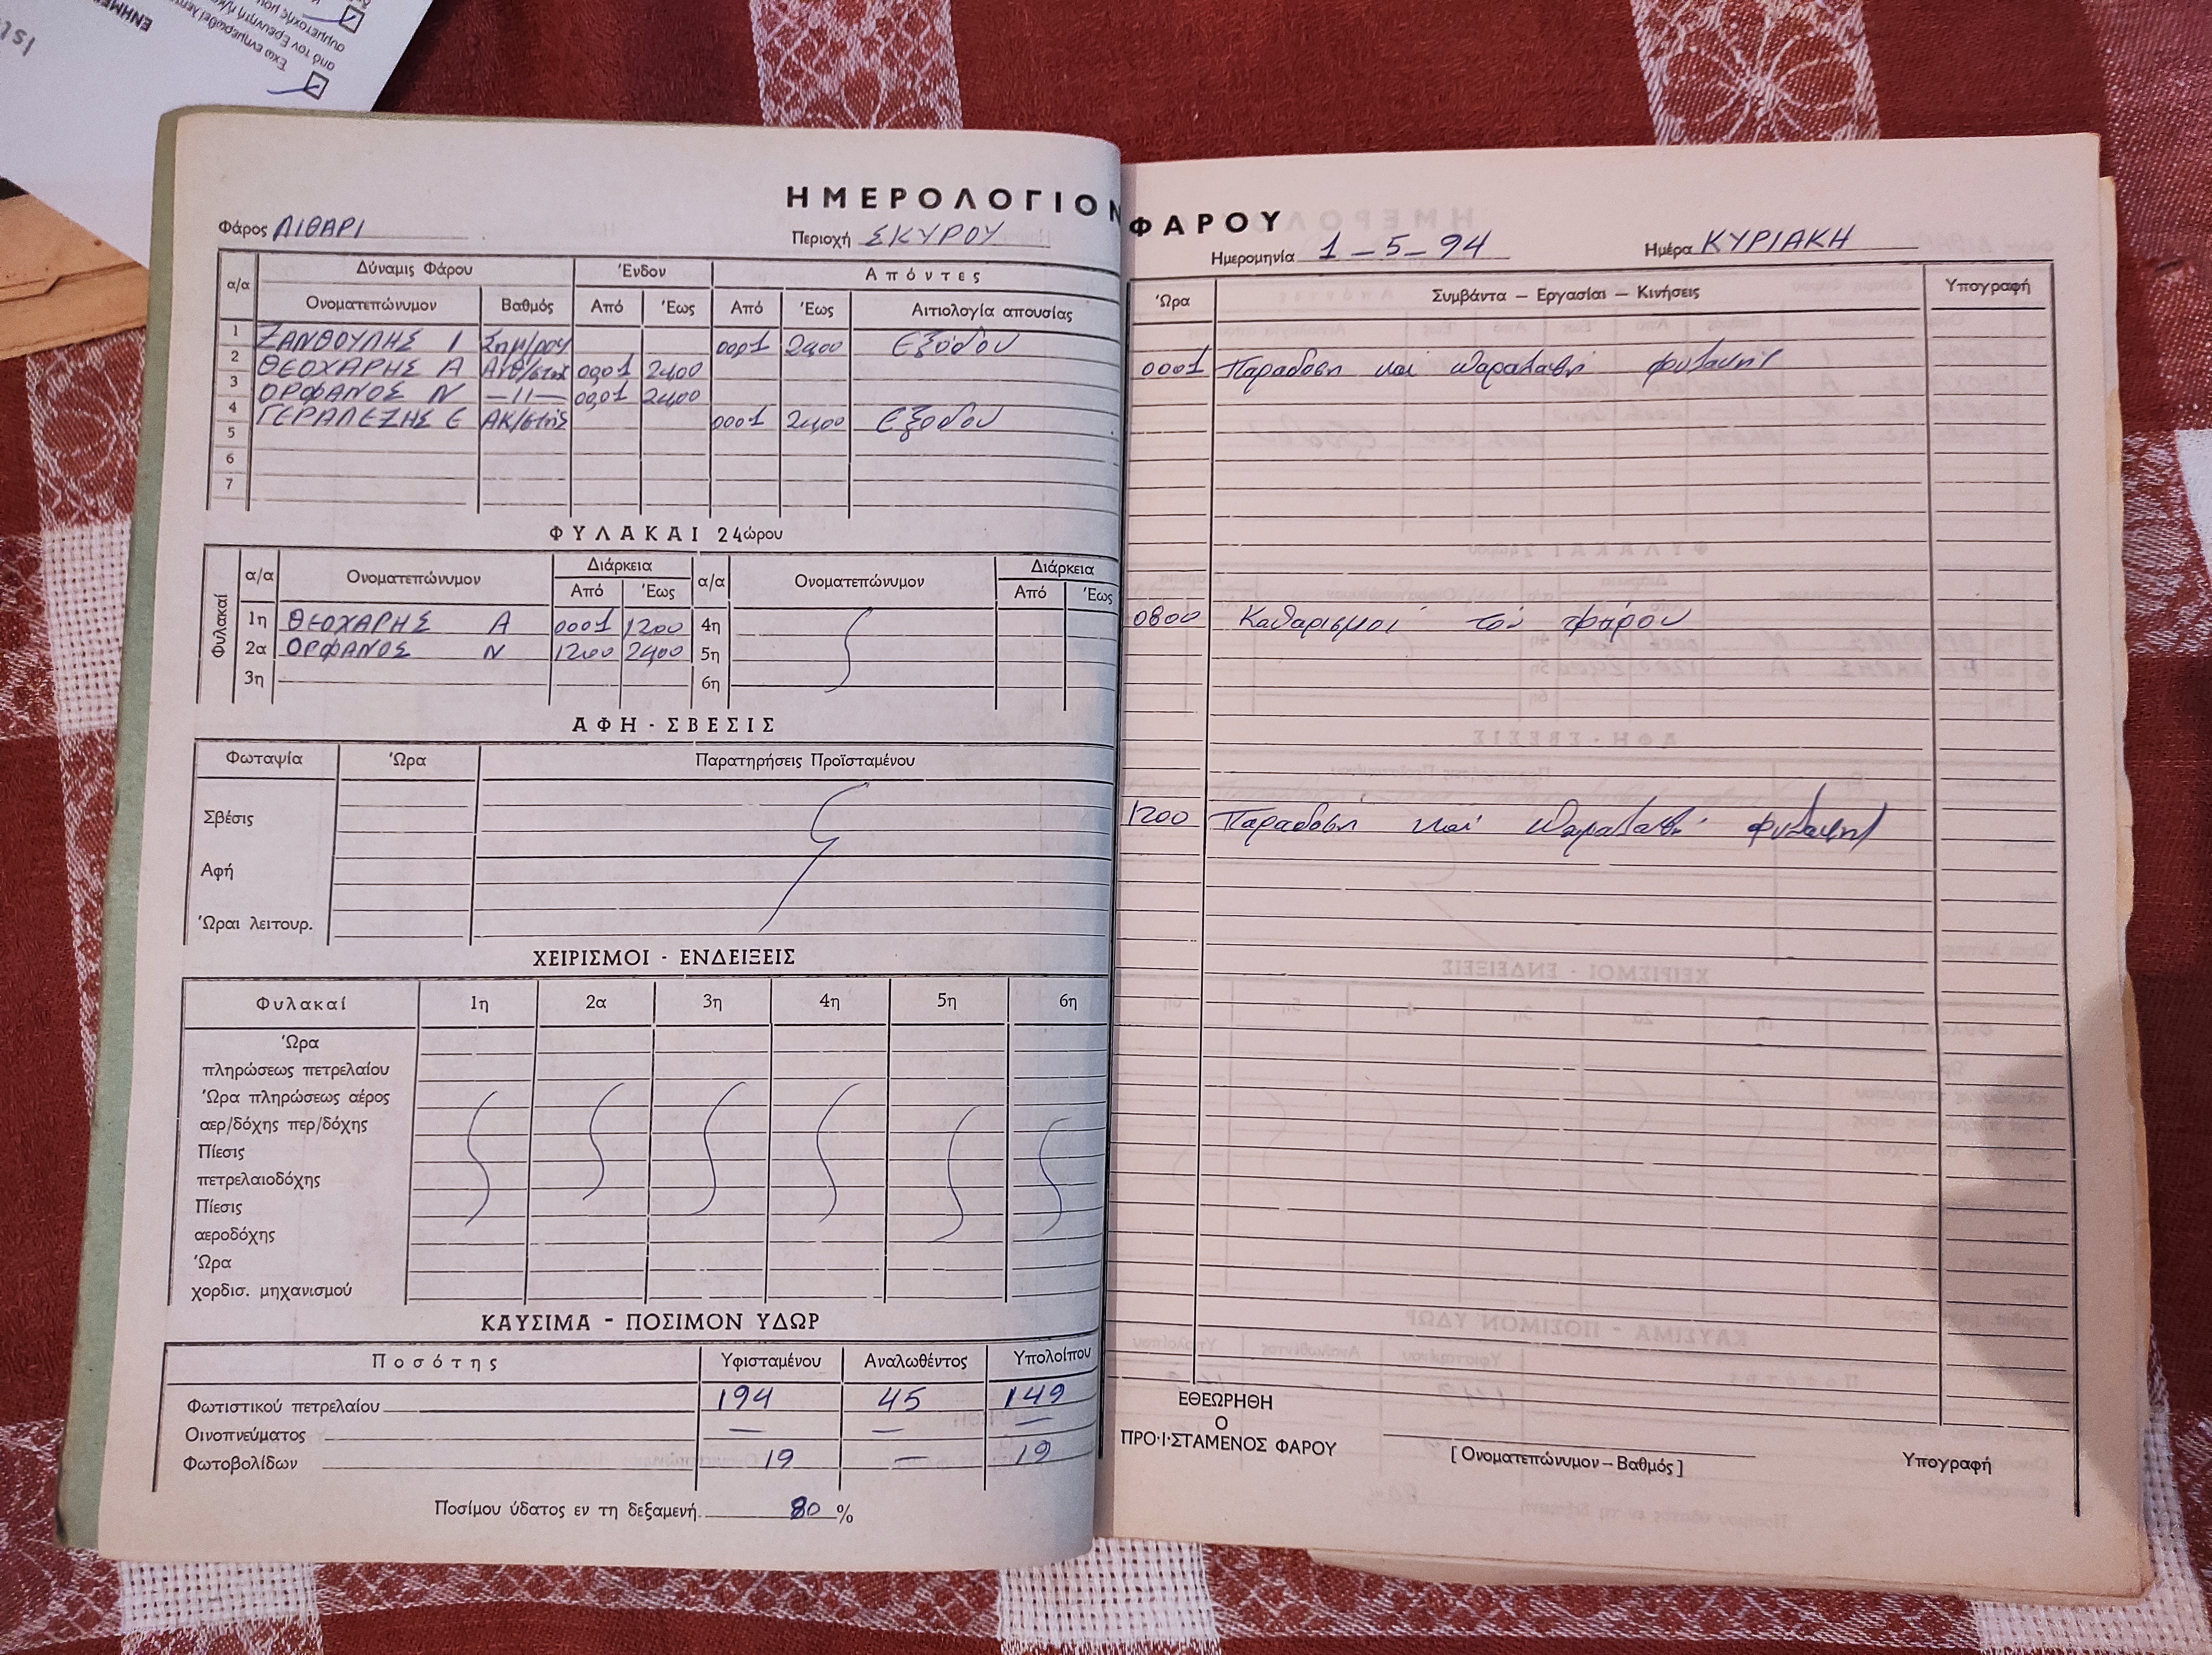 ΕΝΗΜΕ
Έχω ενημερωθεί
από τον Ερευνητή
συμμετοχής μου
ΗΜΕΡΟΛΟΓΙΟΝ ΦΑΡΟΥ
Φάρος ΛΙΘΑΡΙ Περιοχή ΣΚΥΡΟΥ Ημερομηνία 1-5-94 Ημέρα ΚΥΡΙΑΚΗ
α/α Δύναμις Φάρου Ένδον Απόντες
Ονοματεπώνυμον Βαθμός Από Έως Από Έως Αιτιολογία απουσίας
1 ΞΑΝΘΟΥΛΗΣ Ι 0001 2400 Εξόδου
2 ΘΕΟΧΑΡΗΣ Α 0001 2400
3 ΟΡΦΑΝΟΣ Ν —11— 0001 2400
4 ΓΕΡΑΛΕΖΗΣ Ε 0001 2400 Εξοδου
5
6
7
ΦΥΛΑΚΑΙ 24ώρου
Φυλακαί α/α Ονοματεπώνυμον Διάρκεια α/α Ονοματεπώνυμον Διάρκεια
Από Έως Από Έως
1η ΘΕΟΧΑΡΗΣ Α 0001 1200 4η
2α ΟΡΦΑΝΟΣ Ν 1200 2400 5η
3η 6η
ΑΦΗ - ΣΒΕΣΙΣ
Φωταψία Ώρα Παρατηρήσεις Προϊσταμένου
Σβέσις
Αφή
Ώραι λειτουρ.
ΧΕΙΡΙΣΜΟΙ - ΕΝΔΕΙΞΕΙΣ
Φυλακαί 1η 2α 3η 4η 5η 6η
Ώρα
πληρώσεως πετρελαίου
Ώρα πληρώσεως αέρος
αερ/δόχης περ/δόχης
Πίεσις
πετρελαιοδόχης
Πίεσις
αεροδόχης
Ώρα
χορδισ. μηχανισμού
ΚΑΥΣΙΜΑ - ΠΟΣΙΜΟΝ ΥΔΩΡ
Ποσότης Υφισταμένου Αναλωθέντος Υπολοίπου
Φωτιστικού πετρελαίου 194 45 149
Οινοπνεύματος — — —
Φωτοβολίδων 19 — 19
Ποσίμου ύδατος εν τη δεξαμενή 80 %
Ώρα Συμβάντα — Εργασίαι — Κινήσεις Υπογραφή
0001 Παραδοση και παραλαβή φυλακής
0800 Καθαρισμοί του φάρου
1200 Παραδοση και παραλαβή φυλακής
ΕΘΕΩΡΗΘΗ
Ο
ΠΡΟ·Ι·ΣΤΑΜΕΝΟΣ ΦΑΡΟΥ
[ Ονοματεπώνυμον — Βαθμός ] Υπογραφή